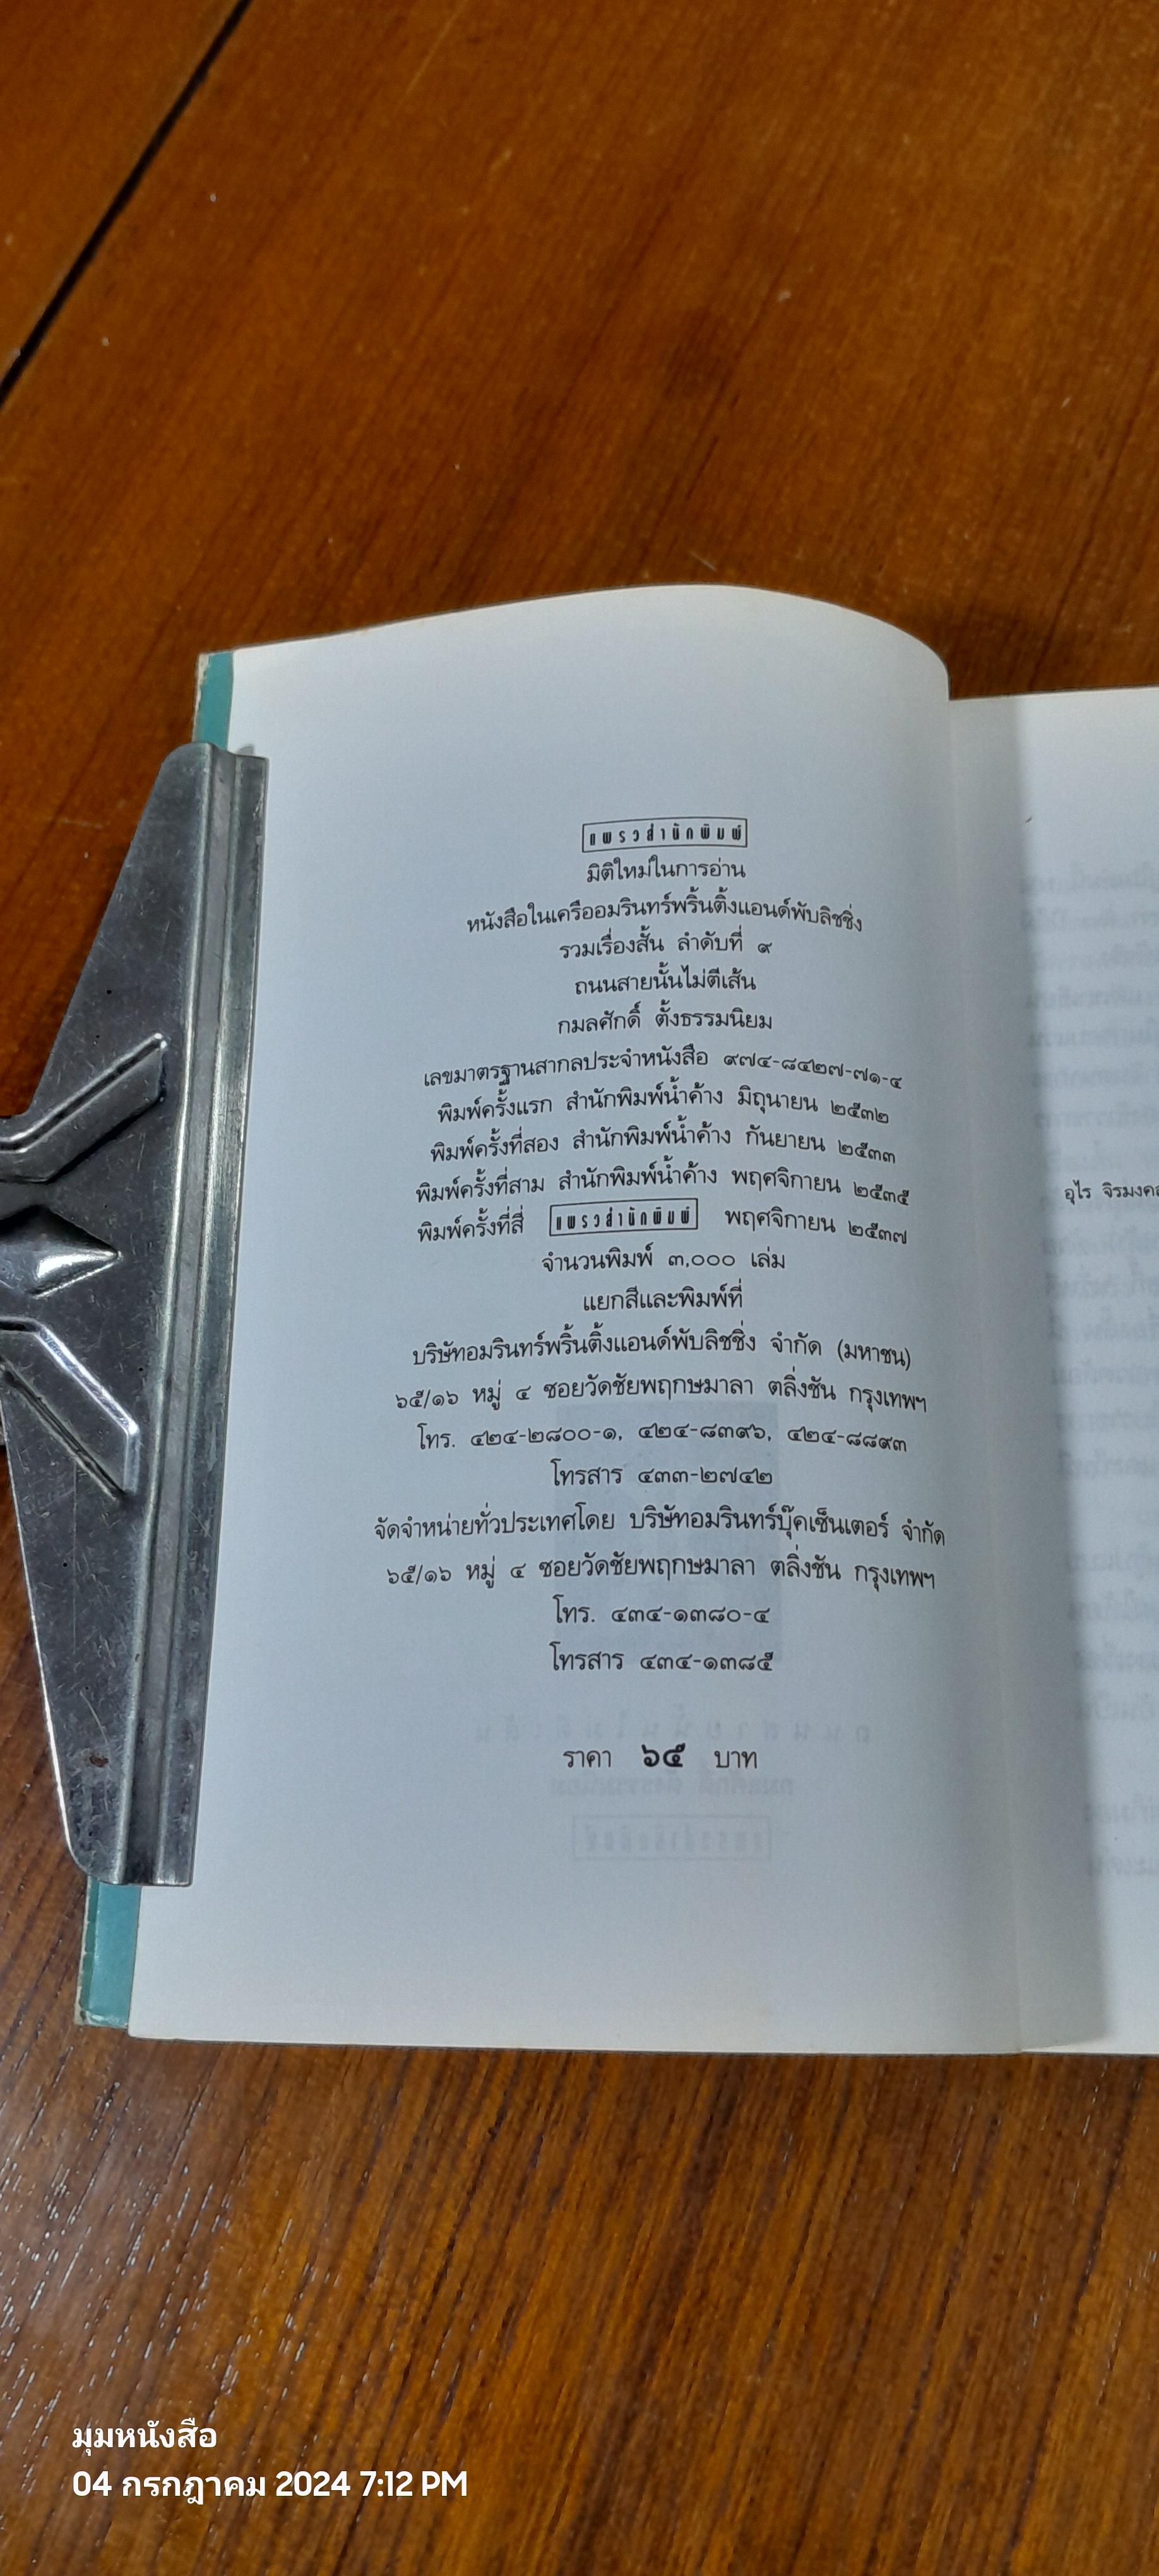 แพรวสำนักพิมพ์
มิติใหม่ในการอ่าน
หนังสือในเครืออมรินทร์พริ้นติ้งแอนด์พับลิชชิ่ง
รวมเรื่องสั้น ลำดับที่ ๙
ถนนสายนั้นไม่ตีเส้น
กมลศักดิ์ ตั้งธรรมนิยม
เลขมาตรฐานสากลประจำหนังสือ ๙๗๔-๘๔๒๗-๗๑-๔
พิมพ์ครั้งแรก สำนักพิมพ์น้ำค้าง มิถุนายน ๒๕๓๒
พิมพ์ครั้งที่สอง สำนักพิมพ์น้ำค้าง กันยายน ๒๕๓๓
พิมพ์ครั้งที่สาม สำนักพิมพ์น้ำค้าง พฤศจิกายน ๒๕๓๕
พิมพ์ครั้งที่สี่ แพรวสำนักพิมพ์ พฤศจิกายน ๒๕๓๗
จำนวนพิมพ์ ๓,๐๐๐ เล่ม
แยกสีและพิมพ์ที่
บริษัทอมรินทร์พริ้นติ้งแอนด์พับลิชชิ่ง จำกัด (มหาชน)
๖๕/๑๖ หมู่ ๔ ซอยวัดชัยพฤกษมาลา ตลิ่งชัน กรุงเทพฯ
โทร. ๔๒๔-๒๘๐๐-๑, ๔๒๔-๘๓๙๖, ๔๒๔-๘๘๙๓
โทรสาร ๔๓๓-๒๗๔๒
จัดจำหน่ายทั่วประเทศโดย บริษัทอมรินทร์บุ๊คเซ็นเตอร์ จำกัด
๖๕/๑๖ หมู่ ๔ ซอยวัดชัยพฤกษมาลา ตลิ่งชัน กรุงเทพฯ
โทร. ๔๓๔-๑๓๘๐-๔
โทรสาร ๔๓๔-๑๓๘๕
ราคา ๖๕ บาท
อุไร
มุมหนังสือ
04 กรกฎาคม 2024 7:12 PM